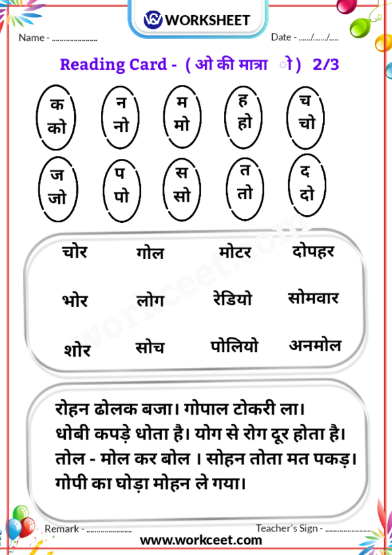 WORKSHEET
Name - ........................ Date - ....../....../.....
Reading Card - ( ओ की मात्रा ो ) 2/3
क न म ह च
को नो मो हो चो
ज प स त द
जो पो सो तो दो
चोर गोल मोटर दोपहर
भोर लोग रेडियो सोमवार
शोर सोच पोलियो अनमोल
रोहन ढोलक बजा। गोपाल टोकरी ला।
धोबी कपड़े धोता है। योग से रोग दूर होता है।
तोल - मोल कर बोल । सोहन तोता मत पकड़।
गोपी का घोड़ा मोहन ले गया।
Remark - ........................ Teacher's Sign - ........................
www.workceet.com